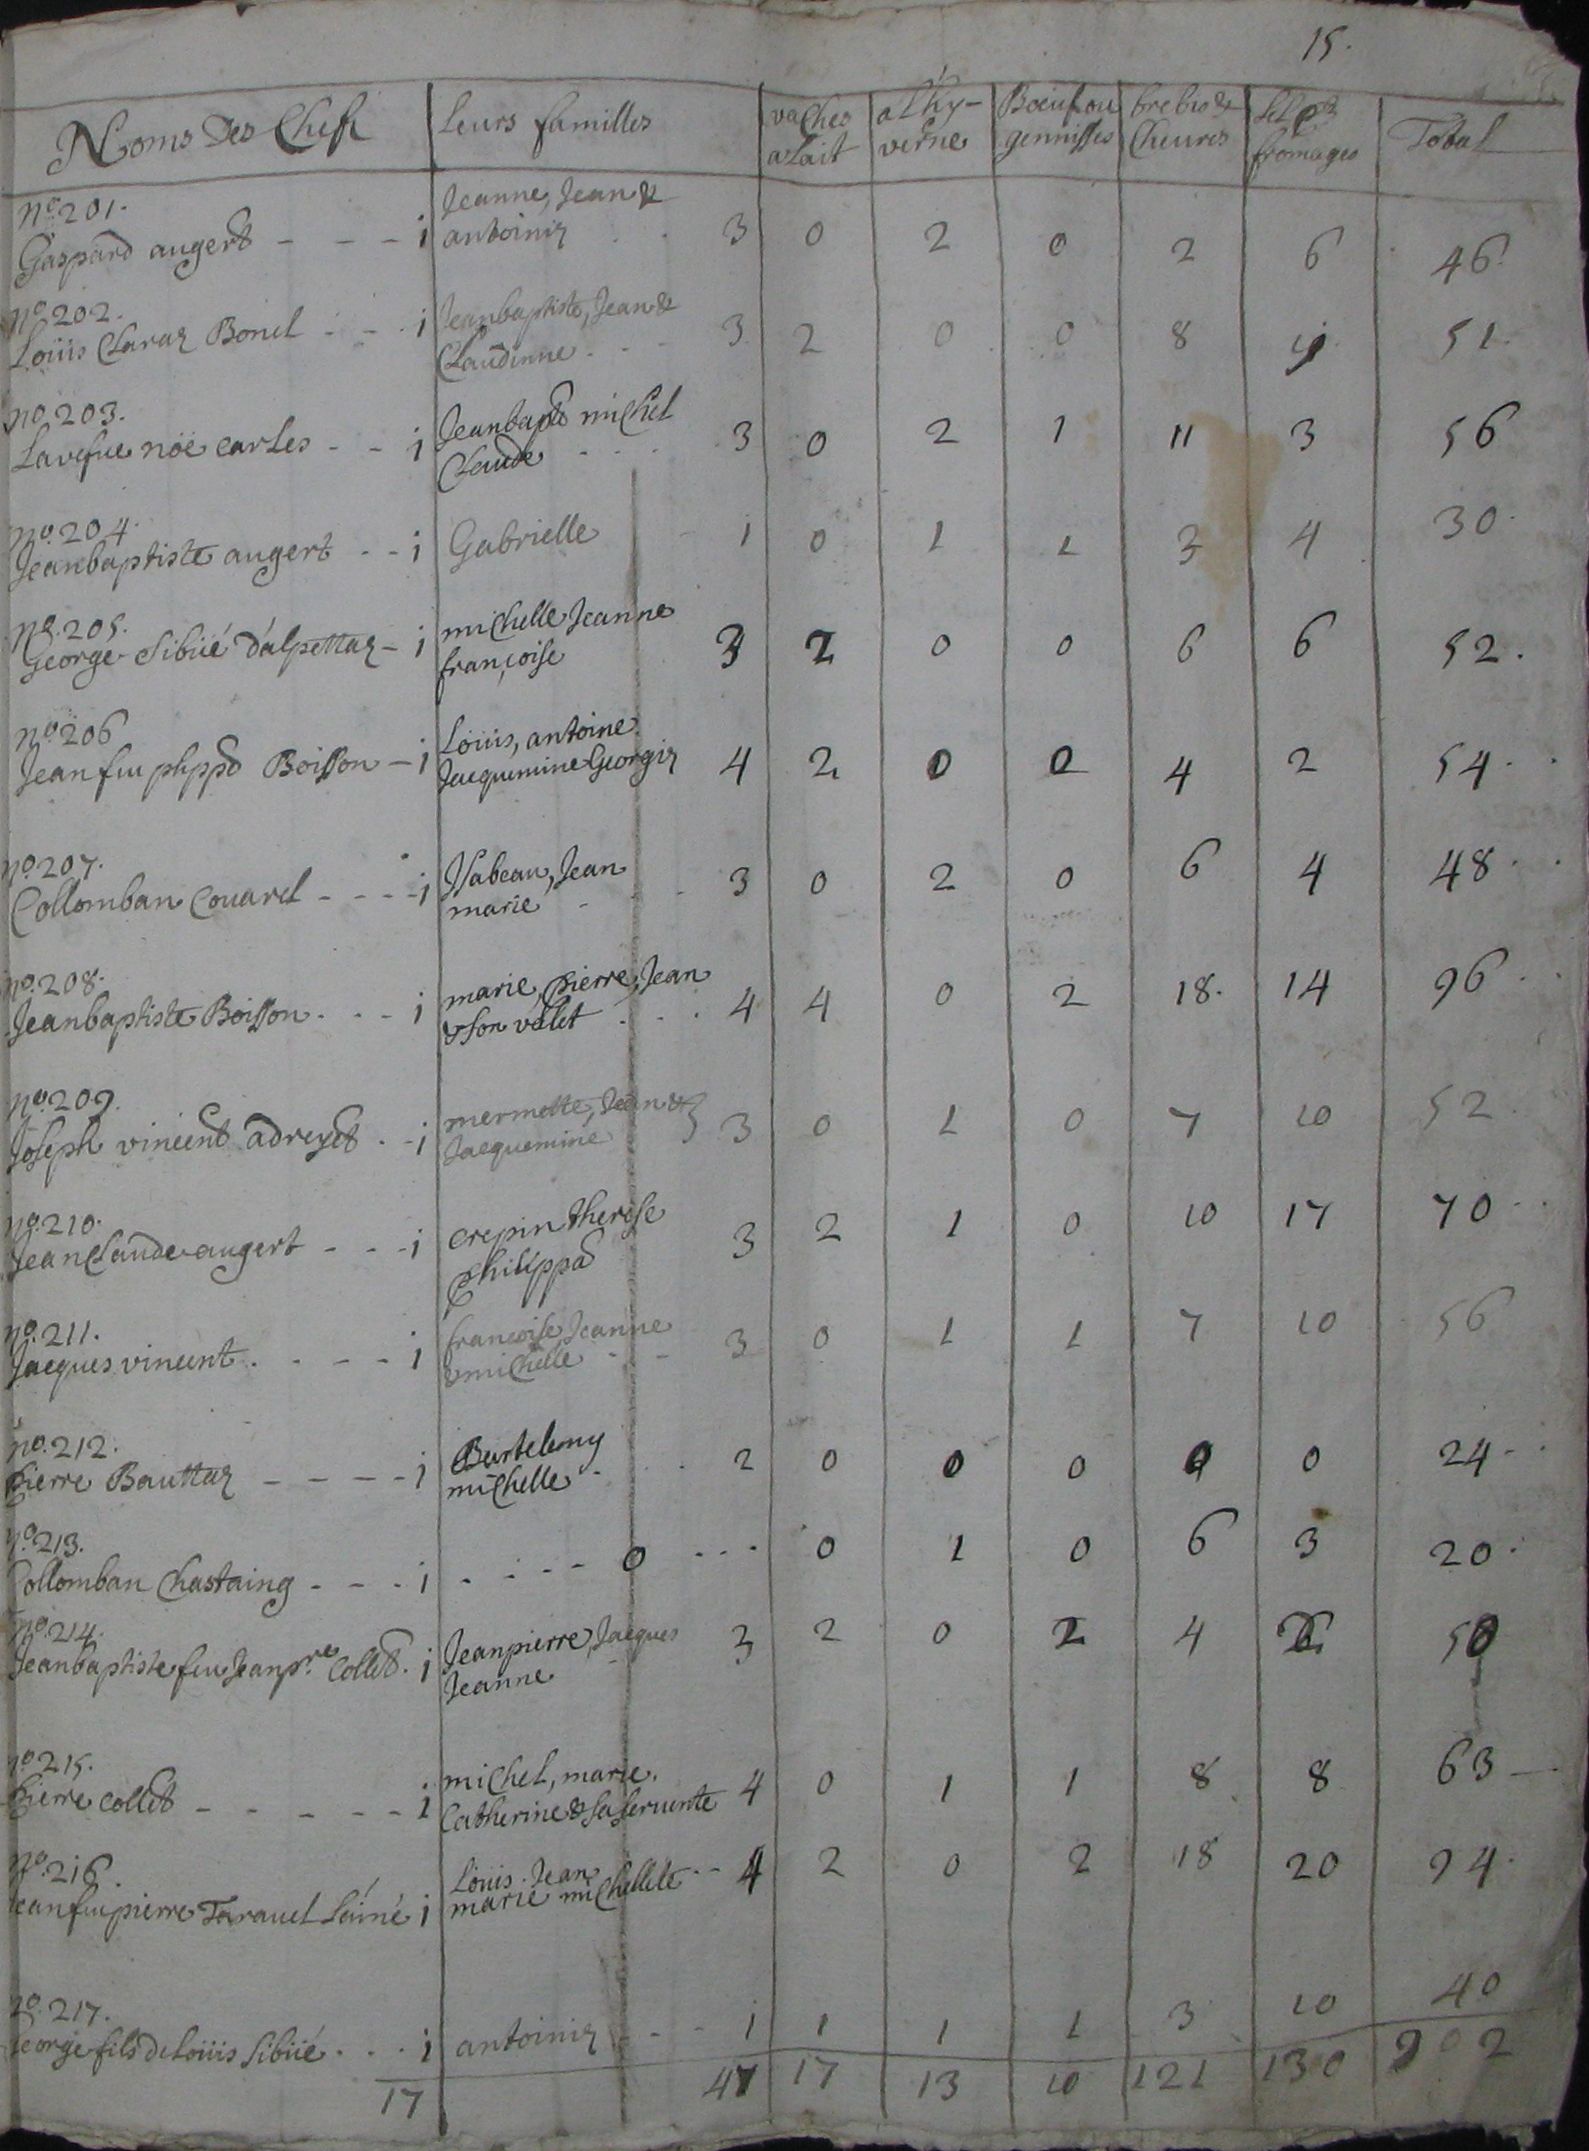 15.
Noms Des Chefs | Leurs familles | vaches alait | al'hyverne | Boeufs ou genisses | brebis & Cheures | sel et fromages | Total
no. 201.
Gaspard augert - - - i | Jeanne, Jean & antoiniz . . 3 | 0 | 2 | 0 | 2 | 6 | 46.
no. 202.
Loüis Claraz Bonel - - . i | Jeanbaptiste, Jean & Claudinne . - - 3 | 2 | 0 | 0 | 8 | 51.
no. 203.
noë carles - - i | Jeanbapte michel Claude . . . . 3 | 0 | 2 | 1 | 11 | 3 | 56
no. 204.
Jeanbaptiste augert - - i | Gabrielle - 1 | 0 | 1 | 1 | 3 | 4 | 30.
no. 205.
George Sibüé d'alpettaz - i | michelle Jeanne françoise 3 | 2 | 0 | 0 | 6 | 6 | 52.
no. 206
Jean feu phppd Boisson - i | Loüis, antoine. Jacquemine Georgiz 4 | 2 | 0 | 2 | 4 | 2 | 54.
no. 207.
Collomban Couarel - - - - i | Isabeau, Jean marie - . . 3 | 0 | 2 | 0 | 6 | 4 | 48.
no. 208.
Jeanbaptiste Boisson . - - i | marie, pierre, Jean & son valet . . . 4 | 4 | 0 | 2 | 18. | 14 | 96
no. 209.
Joseph vincent adreyet . - i | mermette, Jean & Jacquemine 3 | 0 | 1 | 0 | 7 | 10 | 52.
no. 210.
Jean Claude augert - - - i | crepin therese Philippa 3 | 2 | 1 | 0 | 10 | 17 | 70
no. 211.
Jacques vincent . . - - i | francoise, Jeanne & michelle - - 3 | 0 | 1 | 1 | 7 | 10 | 56
no. 212.
pierre Bauttaz - - - - i | Bartelemy michelle . . 2 | 0 | 0 | 0 | 0 | 0 | 24
no. 213.
Collomban Chastaing - - - i | - - - - 0 - - - | 0 | 1 | 0 | 6 | 3 | 20.
no. 214.
Jeanbaptiste feu Jeanpre. Collet . i | Jeanpierre, Jacques Jeanne 3 | 2 | 0 | 2 | 4 | 50
no. 215.
Pierre collet - - - - - i | michel, marie. Catherine & sa seruente 4 | 0 | 1 | 1 | 8 | 8 | 63
no. 216.
Jean feu pierre Tarauel L'ainé i | Loüis. Jean marie michellete . - - 4 | 2 | 0 | 2 | 18 | 20 | 94.
no. 217.
George fils de Loüis Sibüé . . . i | antoiniz - - - 1 | 1 | 1 | 1 | 3 | 10 | 40
17 | 47 | 17 | 13 | 10 | 121 | 130 | 902